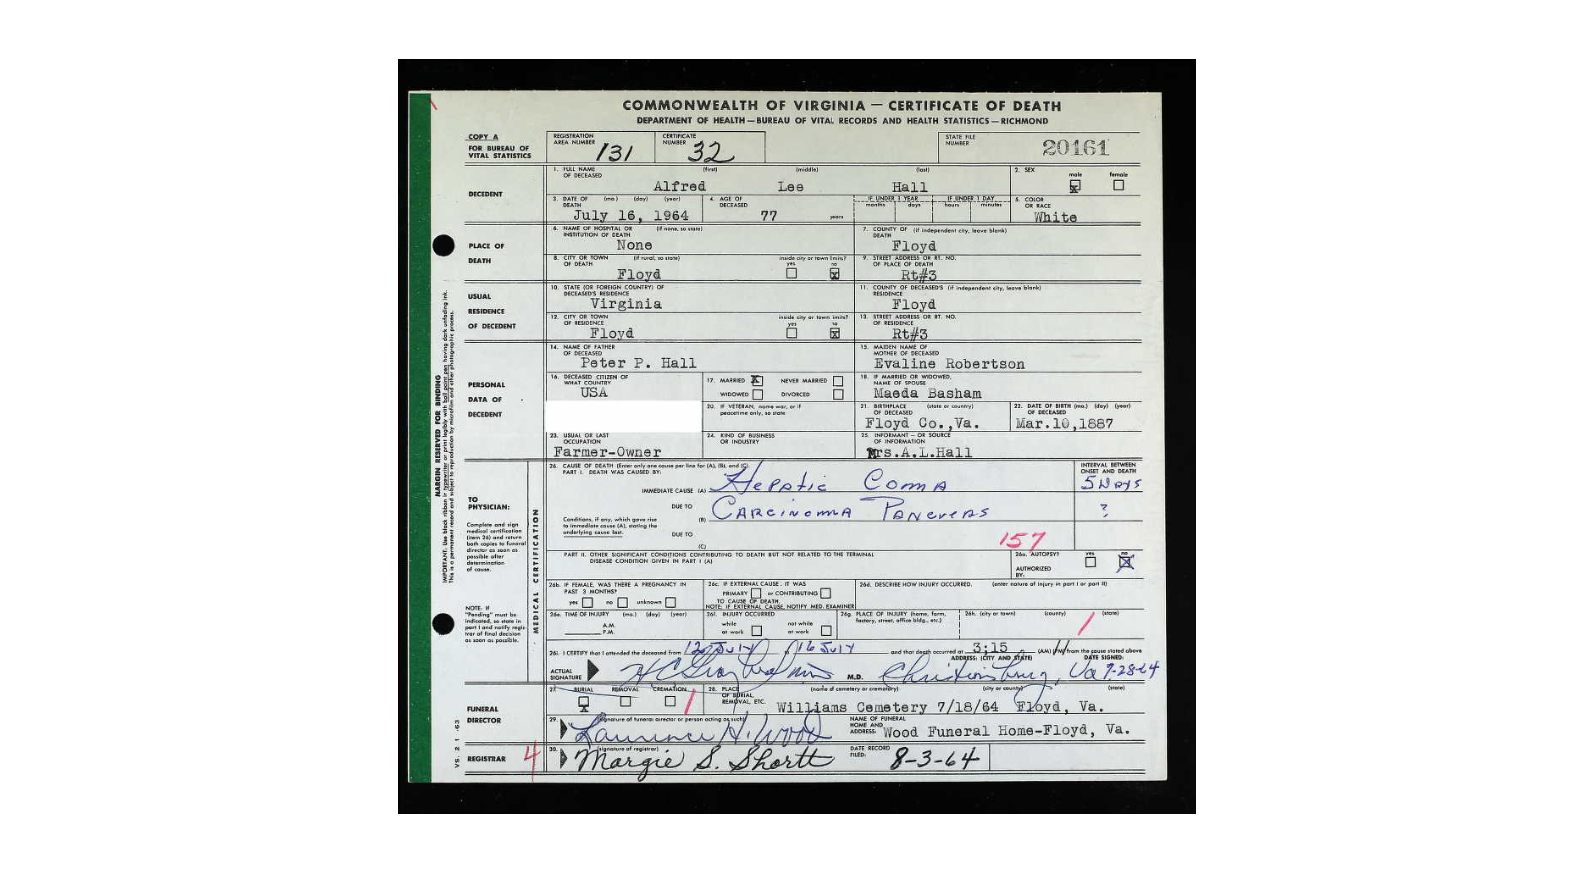 COMMONWEALTH OF VIRGINIA — CERTIFICATE OF DEATH
DEPARTMENT OF HEALTH — BUREAU OF VITAL RECORDS AND HEALTH STATISTICS — RICHMOND
COPY A
FOR BUREAU OF VITAL STATISTICS
REGISTRATION AREA NUMBER 131
CERTIFICATE NUMBER 32
STATE FILE NUMBER 20161
DECEDENT
1. FULL NAME OF DECEASED (first) (middle) (last)
Alfred Lee Hall
2. SEX male female
x
3. DATE OF DEATH (mo.) (day) (year)
July 16, 1964
4. AGE OF DECEASED
77 years
IF UNDER 1 YEAR months days
IF UNDER 1 DAY hours minutes
5. COLOR OR RACE
White
PLACE OF DEATH
6. NAME OF HOSPITAL OR INSTITUTION OF DEATH (if none, so state)
None
7. COUNTY OF DEATH (if independent city, leave blank)
Floyd
8. CITY OR TOWN OF DEATH (if rural, so state)
Floyd
inside city or town limits? yes no
x
9. STREET ADDRESS OR RT. NO. OF PLACE OF DEATH
Rt#3
USUAL RESIDENCE OF DECEDENT
10. STATE (OR FOREIGN COUNTRY) OF DECEASED'S RESIDENCE
Virginia
11. COUNTY OF DECEASED'S RESIDENCE (if independent city, leave blank)
Floyd
12. CITY OR TOWN OF RESIDENCE
Floyd
inside city or town limits? yes no
x
13. STREET ADDRESS OR RT. NO. OF RESIDENCE
Rt#3
PERSONAL DATA OF DECEDENT
14. NAME OF FATHER OF DECEASED
Peter P. Hall
15. MAIDEN NAME OF MOTHER OF DECEASED
Evaline Robertson
16. DECEASED CITIZEN OF WHAT COUNTRY
USA
17. MARRIED X NEVER MARRIED
WIDOWED DIVORCED
18. IF MARRIED OR WIDOWED, NAME OF SPOUSE
Maeda Basham
20. IF VETERAN, name war, or if peacetime only, so state
21. BIRTHPLACE OF DECEASED (state or country)
Floyd Co.,Va.
22. DATE OF BIRTH OF DECEASED (mo.) (day) (year)
Mar.10,1887
23. USUAL OR LAST OCCUPATION
Farmer-Owner
24. KIND OF BUSINESS OR INDUSTRY
25. INFORMANT — OR SOURCE OF INFORMATION
Mrs.A.L.Hall
MARGIN RESERVED FOR BINDING
IMPORTANT: Use black ribbon in typewriter or print legibly with ball point pen having dark unfading ink.
This is a permanent record and subject to reproduction by microfilm and other photographic process.
TO PHYSICIAN:
Complete and sign medical certification (item 26) and return both copies to funeral director as soon as possible after determination of cause.
NOTE: If "Pending" must be indicated, so state in part I and notify registrar of final decision as soon as possible.
MEDICAL CERTIFICATION
26. CAUSE OF DEATH (Enter only one cause per line for (A), (B), and (C).
PART I. DEATH WAS CAUSED BY:
INTERVAL BETWEEN ONSET AND DEATH
IMMEDIATE CAUSE (A) Hepatic Coma 5 Days
DUE TO (B) Carcinoma Pancreas ?
Conditions, if any, which gave rise to immediate cause (A), stating the underlying cause last.
DUE TO (C)
157
PART II. OTHER SIGNIFICANT CONDITIONS CONTRIBUTING TO DEATH BUT NOT RELATED TO THE TERMINAL DISEASE CONDITION GIVEN IN PART I (A)
26a. AUTOPSY? yes no
X
AUTHORIZED BY:
26b. IF FEMALE, WAS THERE A PREGNANCY IN PAST 3 MONTHS?
yes no unknown
26c. IF EXTERNAL CAUSE, IT WAS
PRIMARY or CONTRIBUTING
TO CAUSE OF DEATH
NOTE: IF EXTERNAL CAUSE, NOTIFY MED. EXAMINER
26d. DESCRIBE HOW INJURY OCCURRED. (enter nature of injury in part I or part II)
26e. TIME OF INJURY (mo.) (day) (year)
A.M.
P.M.
26f. INJURY OCCURRED
while at work not while at work
26g. PLACE OF INJURY (home, farm, factory, street, office bldg., etc.)
26h. (city or town) (county) (state)
26i. I CERTIFY that I attended the deceased from 12 July to 16 July and that death occurred at 3:15 (AM) (PM) from the cause stated above
ACTUAL SIGNATURE
M.D.
ADDRESS: (CITY AND STATE)
Christiansburg, Va
DATE SIGNED:
7-28-64
FUNERAL DIRECTOR
27. BURIAL REMOVAL CREMATION
x
28. PLACE OF BURIAL, REMOVAL, ETC. (name of cemetery or crematory) (city or county) (state)
Williams Cemetery 7/18/64 Floyd, Va.
29. (signature of funeral director or person acting as such)
Laurence H. Wood
NAME OF FUNERAL HOME AND ADDRESS:
Wood Funeral Home-Floyd, Va.
REGISTRAR
4
30. (signature of registrar)
Margie S. Shortt
DATE RECORD FILED:
8-3-64
VS. 2 1 -63